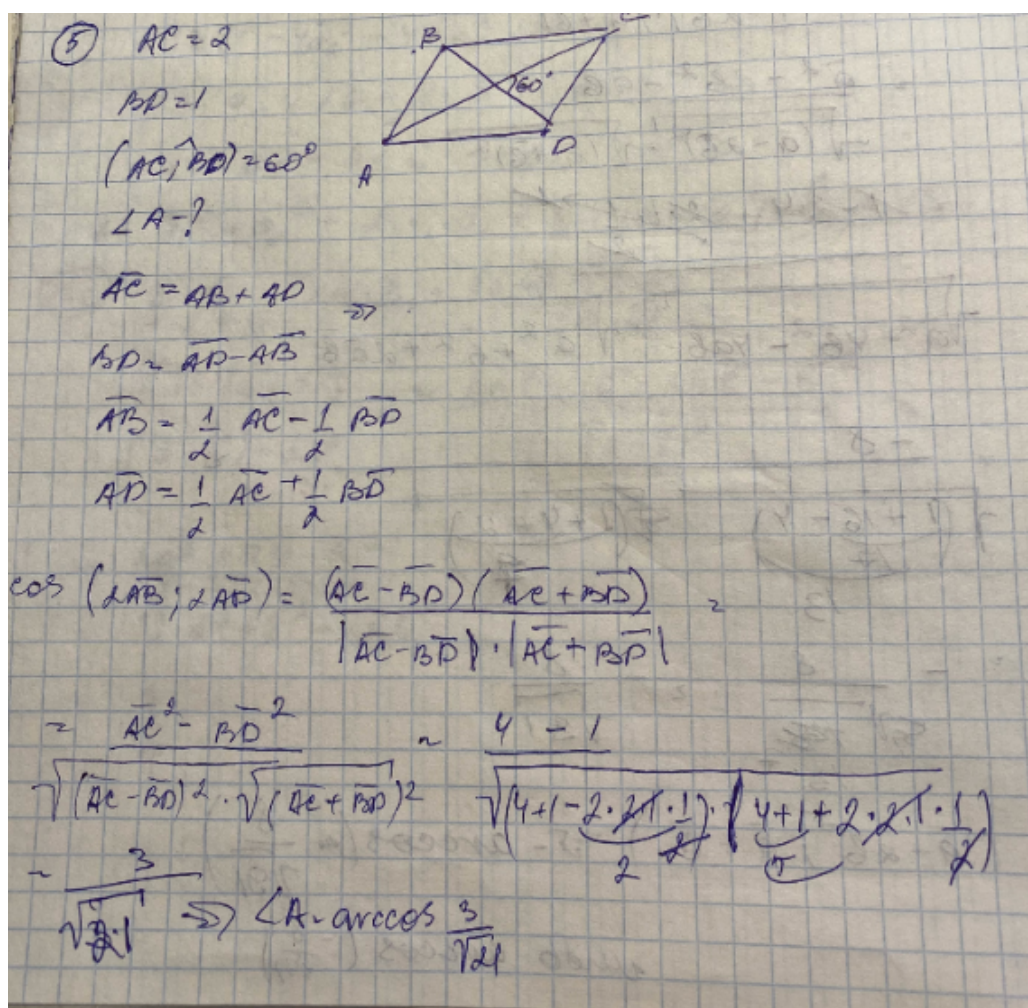 ⑤ AC = 2
BD = 1
(AC;^BD) = 60°
∠A - ?
B
60°
A
D
AC̄ = AB + AD
⇒
BD = AD̄ - AB̄
AB̄ = 1/2 AC̄ - 1/2 BD̄
AD̄ = 1/2 AC̄ + 1/2 BD̄
cos (2AB̄; 2AD̄) = (AC̄ - BD̄)(AC̄ + BD̄) / |AC̄ - BD̄| · |AC̄ + BD̄| =
= AC̄² - BD̄² / √(AC̄ - BD̄)² · √(AC̄ + BD̄)² = 4 - 1 / √(4+1-2·2·1·1/2) · (4+1+2·2·1·1/2)
2
5
= 3 / √21 ⇒ ∠A = arccos 3/√21